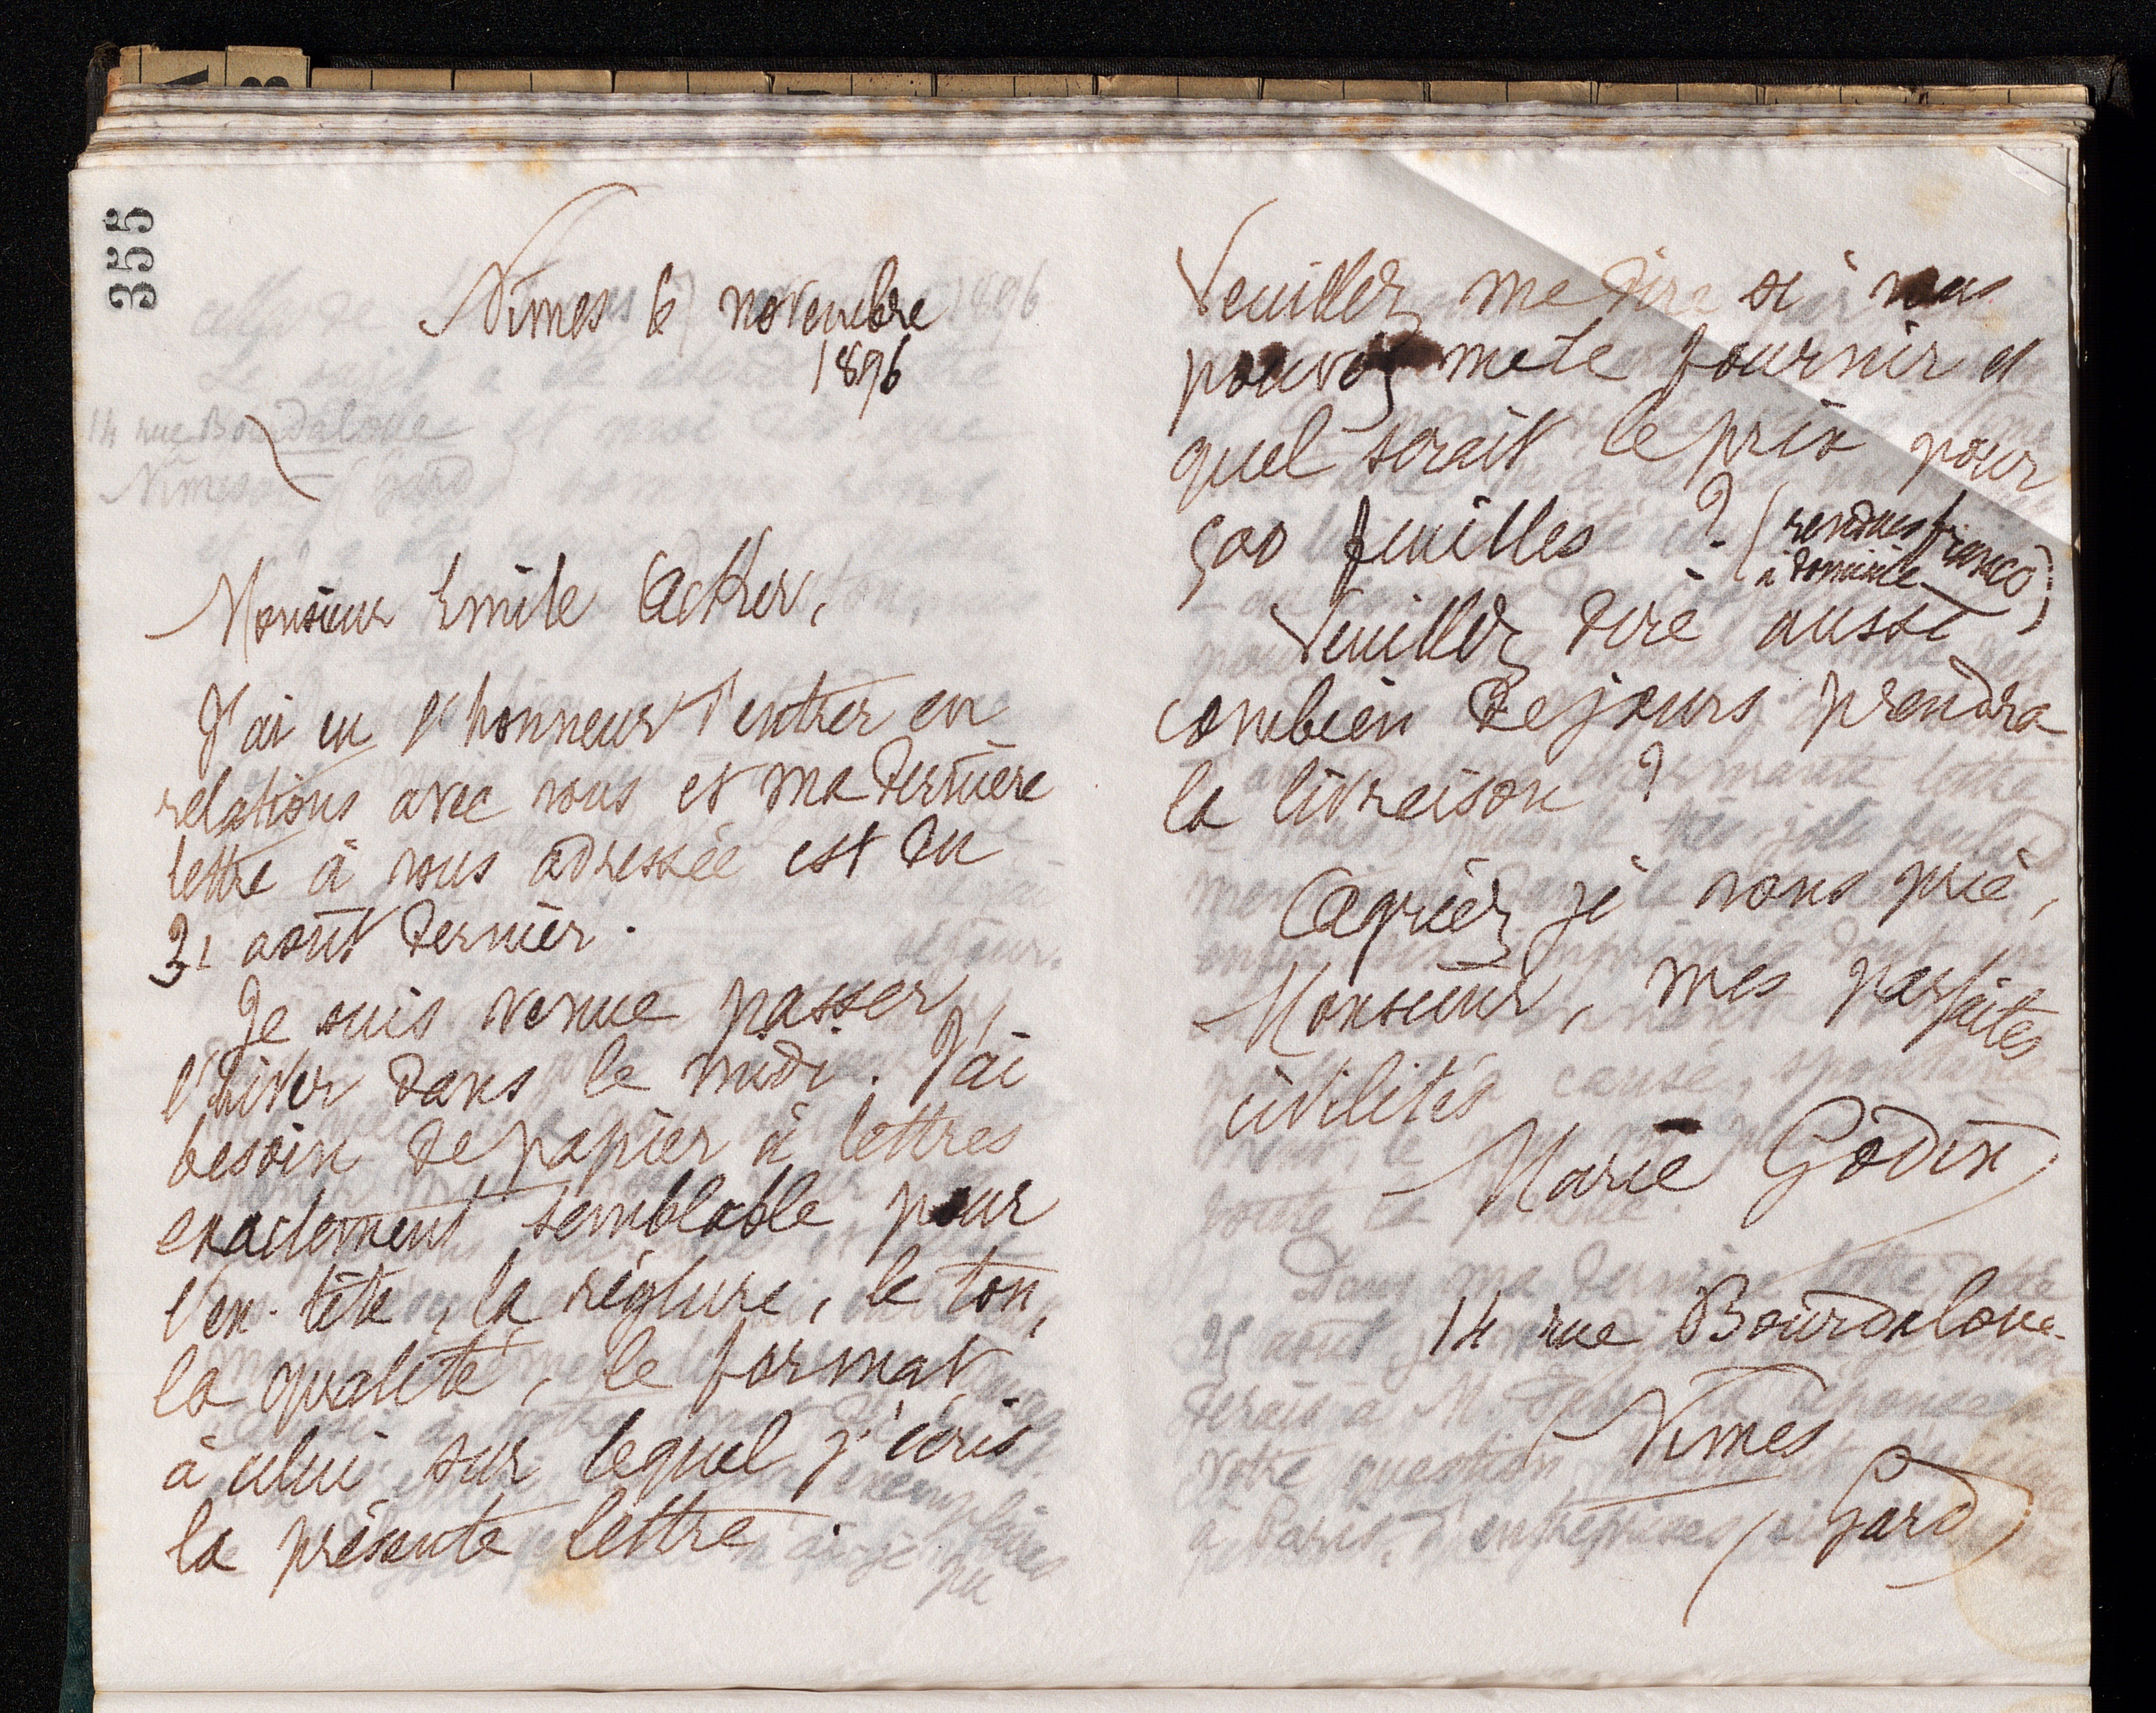 355
Nîmes 6 novembre
1896
Monsieur Emile Acker,
J'ai eu l'honneur d'entrer en
relations avec vous et ma dernière
lettre à vous adressée est du
31 août dernier.
Je suis venue passer
l'hiver dans le midi. J'ai
besoin de papier à lettres
exactement semblable pour
l'en-tête, la réglure, le ton,
la qualité, le format
à celui sur lequel j'écris
la présente lettre.
Veuillez me dire si vous
pouvez me le fournir et
quel serait le prix pour
500 feuilles ? (rendues franco
à domicile)
Veuillez dire aussi
combien de jours prendra
la livraison ?
Agréez je vous prie,
Monsieur, mes parfaites
civilités
Marie Godin
14 rue Bourdaloue
Nîmes
(Gard)